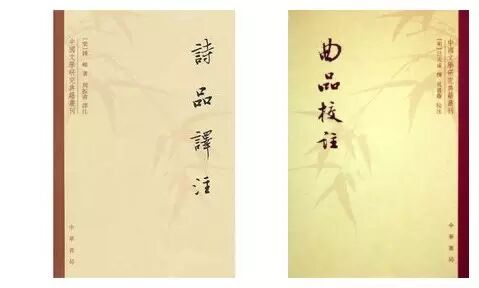 詩品譯注
[梁]鍾嶸 著 周振甫 譯注
中國文學研究典籍叢刊
中華書局
曲品校註
[明]呂天成 撰 吳書蔭 校註
中國文學研究典籍叢刊
中華書局